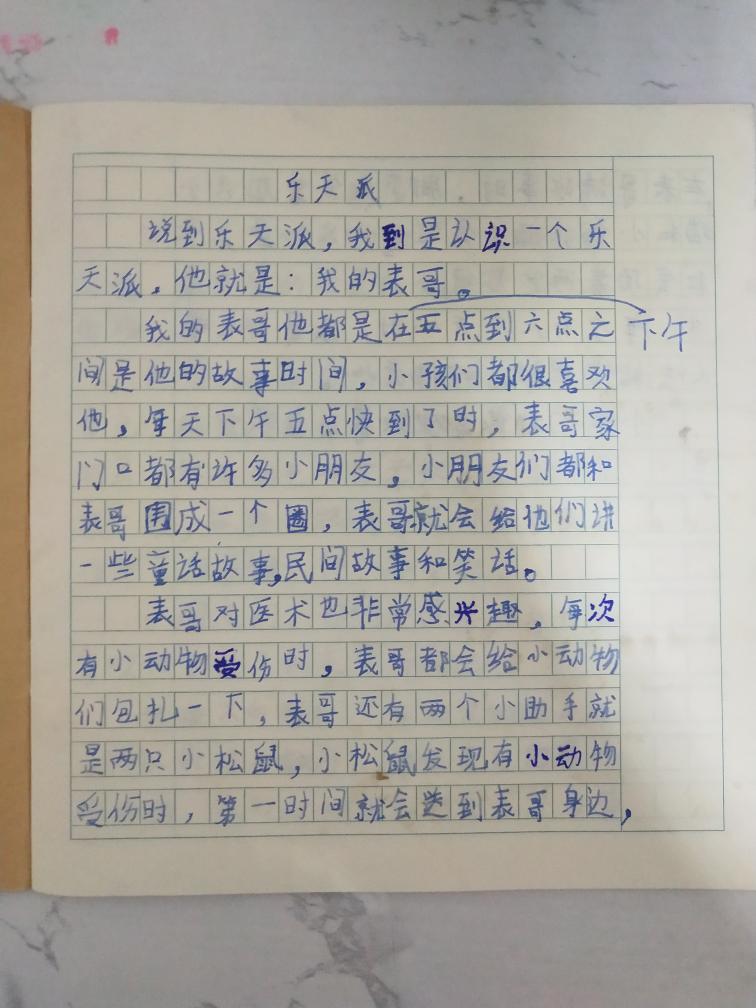 乐天派
说到乐天派,我到是认识一个乐
天派,他就是:我的表哥。
我的表哥他都是在五点到六点之
下午
间是他的故事时间,小孩们都很喜欢
他,每天下午五点快到了时,表哥家
门口都有许多小朋友,小朋友们都和
表哥围成一个圈,表哥就会给他们讲
一些童话故事,民间故事和笑话。
表哥对医术也非常感兴趣,每次
有小动物受伤时,表哥都会给小动物
们包扎一下,表哥还有两个小助手就
是两只小松鼠,小松鼠发现有小动物
受伤时,第一时间就会送到表哥身边,